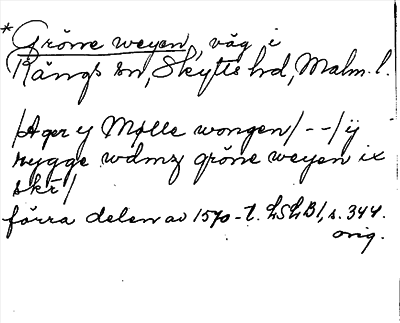 *Gröne weyen, väg i
Rängs sn, Skytts hd, Malm. l.
/Ager y Mølle wongen/--/ij
rygge wdmz gröne weyen ix
skr/
förra delen av 1570-t. LSLB1, s. 344.
orig.